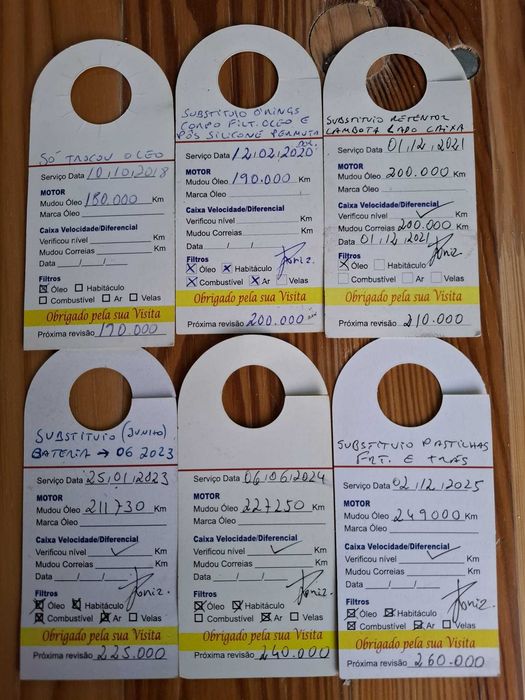 SÓ TROCOU OLEO
Serviço Data 10/10/2018
MOTOR
Mudou Óleo 180.000 Km
Marca Óleo
Caixa Velocidade/Diferencial
Verificou nível Km
Mudou Correias Km
Data / /
Filtros
☒ Óleo ☐ Habitáculo
☐ Combustível ☐ Ar ☐ Velas
Obrigado pela sua Visita
Próxima revisão 190.000
SUBSTITUIO O'RINGS
CORPO FILT. OLEO E
PÔS SILICONE PERMUTA
Serviço Data 12/02/2020
Mudou Óleo 190.000 Km
Marca Óleo
Caixa Velocidade/Diferencial
Verificou nível Km
Mudou Correias Km
Data / /
Filtros
☒ Óleo ☒ Habitáculo
☒ Combustível ☒ Ar ☐ Velas
Obrigado pela sua Visita
Próxima revisão 200.000
SUBSTITUIO RETENTOR
CAMBOTA LADO CAIXA
Serviço Data 01/12/2021
MOTOR
Mudou Óleo 200.000 Km
Marca Óleo
Caixa Velocidade/Diferencial
Verificou nível ✓ Km
Mudou Correias 200.000 Km
Data 01/12/2021
Filtros
☒ Óleo ☐ Habitáculo
☐ Combustível ☐ Ar ☐ Velas
Obrigado pela sua Visita
Próxima revisão 210.000
SUBSTITUIO (JUNHO)
BATERIA → 06 2023
Serviço Data 25/01/2023
MOTOR
Mudou Óleo 211730 Km
Marca Óleo
Caixa Velocidade/Diferencial
Verificou nível ✓ Km
Mudou Correias Km
Data / /
Filtros
☒ Óleo ☒ Habitáculo
☒ Combustível ☒ Ar ☐ Velas
Obrigado pela sua Visita
Próxima revisão 225.000
Serviço Data 06/06/2024
MOTOR
Mudou Óleo 227250 Km
Marca Óleo
Caixa Velocidade/Diferencial
Verificou nível ✓ Km
Mudou Correias Km
Data / /
Filtros
☒ Óleo ☒ Habitáculo
☐ Combustível ☒ Ar ☐ Velas
Obrigado pela sua Visita
Próxima revisão 240.000
SUBSTITUIO PASTILHAS
FRT. E TRÁS
Serviço Data 02/12/2025
MOTOR
Mudou Óleo 249000 Km
Marca Óleo
Caixa Velocidade/Diferencial
Verificou nível ✓ Km
Mudou Correias Km
Data / /
Filtros
☒ Óleo ☒ Habitáculo
☒ Combustível ☒ Ar ☐ Velas
Obrigado pela sua Visita
Próxima revisão 260.000